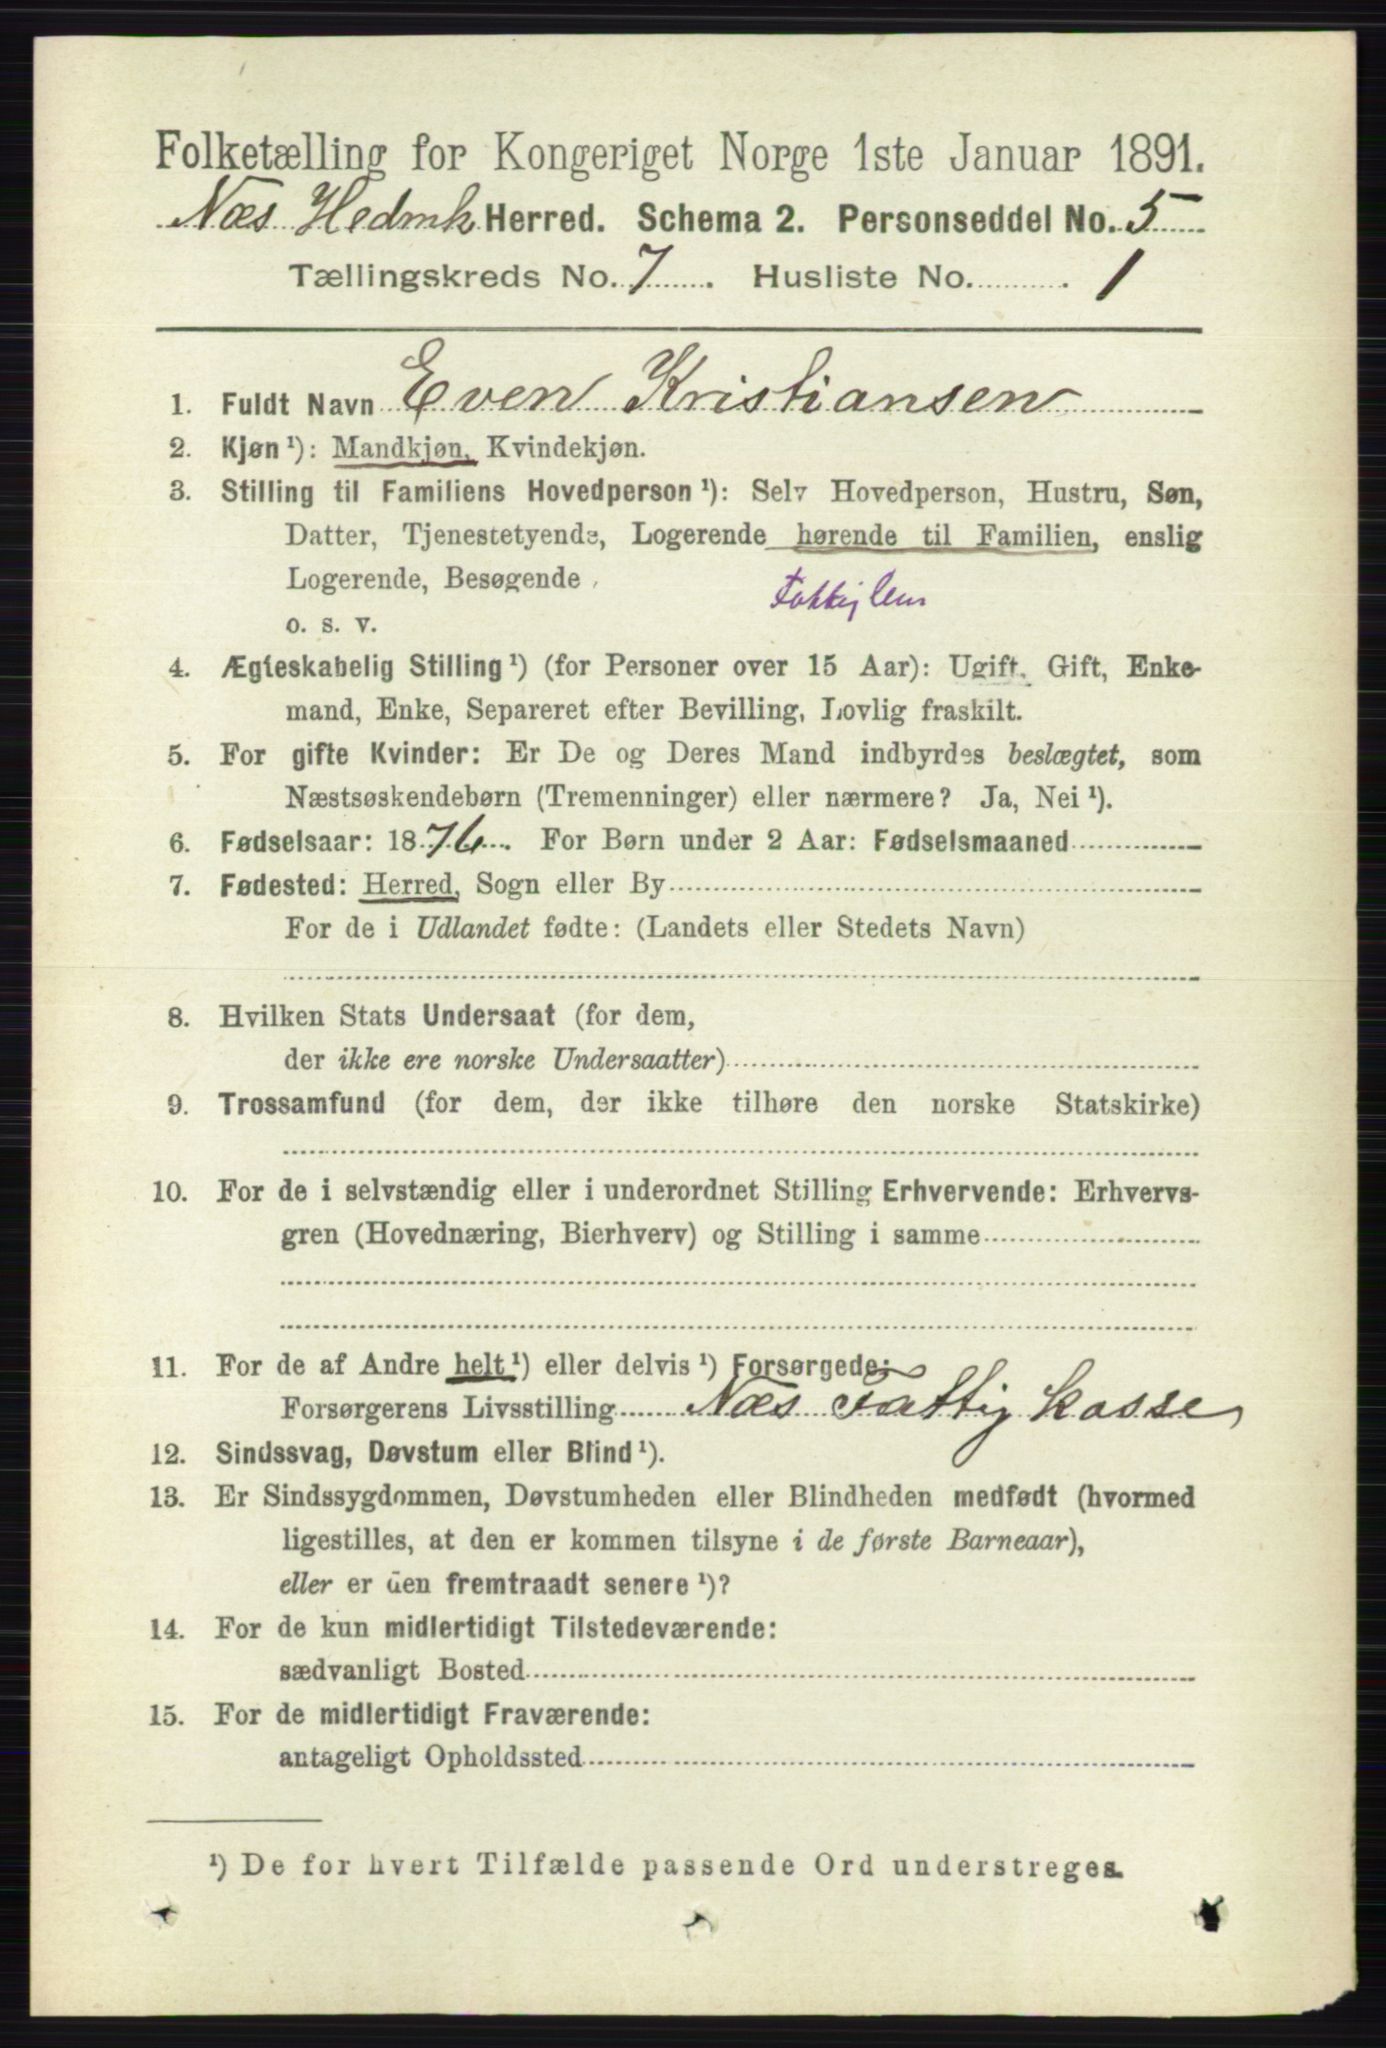 Folketælling for Kongeriget Norge 1ste Januar 1891.
Næs Hedmk Herred. Schema 2. Personseddel No. 5
Tællingskreds No. 7. Husliste No. 1
1. Fuldt Navn Even Kristiansen
2. Kjøn ¹): Mandkjøn, Kvindekjøn.
3. Stilling til Familiens Hovedperson ¹): Selv Hovedperson, Hustru, Søn,
Datter, Tjenestetyende, Logerende hørende til Familien, enslig
Logerende, Besøgende
Fattiglem
o. s. v.
4. Ægteskabelig Stilling ¹) (for Personer over 15 Aar): Ugift, Gift, Enke-
mand, Enke, Separeret efter Bevilling, Lovlig fraskilt.
5. For gifte Kvinder: Er De og Deres Mand indbyrdes beslægtet, som
Næstsøskendebørn (Tremenninger) eller nærmere? Ja, Nei ¹).
6. Fødselsaar: 1876. For Børn under 2 Aar: Fødselsmaaned
7. Fødested: Herred, Sogn eller By
For de i Udlandet fødte: (Landets eller Stedets Navn)
8. Hvilken Stats Undersaat (for dem,
der ikke ere norske Undersaatter)
9. Trossamfund (for dem, der ikke tilhøre den norske Statskirke)
10. For de i selvstændig eller i underordnet Stilling Erhvervende: Erhvervs-
gren (Hovednæring, Bierhverv) og Stilling i samme
11. For de af Andre helt ¹) eller delvis ¹) Forsørgede:
Forsørgerens Livsstilling Næs Fattigkasse
12. Sindssvag, Døvstum eller Blind ¹).
13. Er Sindssygdommen, Døvstumheden eller Blindheden medfødt (hvormed
ligestilles, at den er kommen tilsyne i de første Barneaar),
eller er den fremtraadt senere ¹)?
14. For de kun midlertidigt Tilstedeværende:
sædvanligt Bosted
15. For de midlertidigt Fraværende:
antageligt Opholdssted
¹) De for hvert Tilfælde passende Ord understreges.